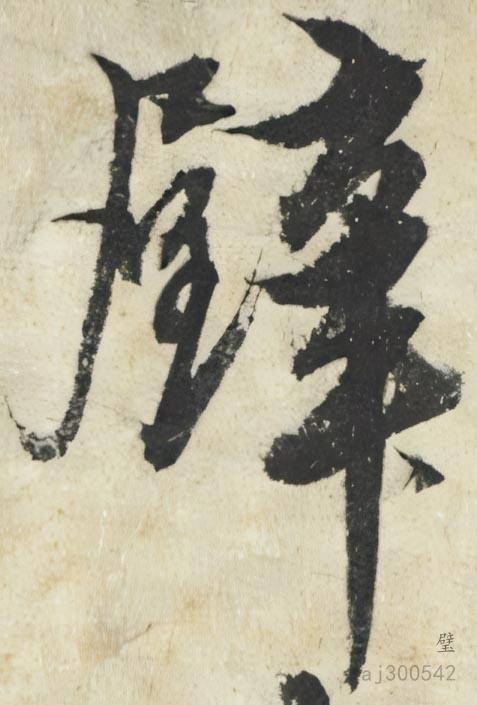 璧
璧
aj300542